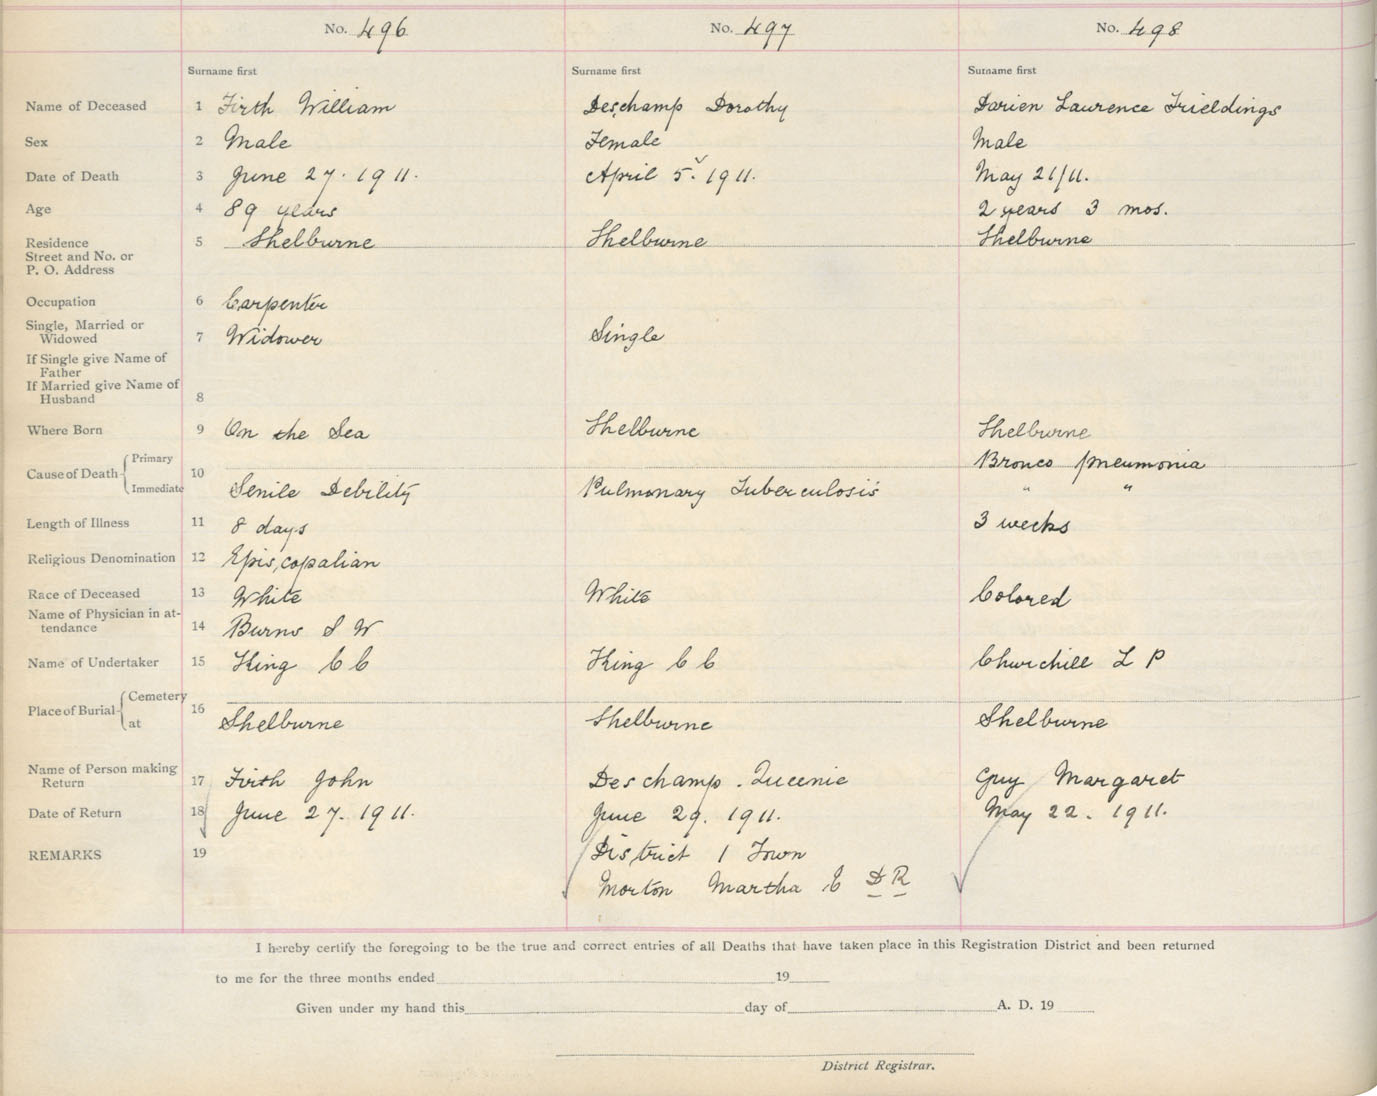 No. 496 No. 497 No. 498
Surname first Surname first Surname first
Name of Deceased 1 Firth William Deschamp Dorothy Darien Laurence Frieldings
Sex 2 Male Female Male
Date of Death 3 June 27. 1911. April 5. 1911. May 21/11.
Age 4 89 years 2 years 3 mos.
Residence 5 Shelburne Shelburne Shelburne
Street and No. or
P. O. Address
Occupation 6 Carpenter
Single, Married or
Widowed 7 Widower Single
If Single give Name of
Father
If Married give Name of
Husband 8
Where Born 9 On the Sea Shelburne Shelburne
Cause of Death { Primary 10 Bronco pneumonia
Immediate Senile Debility Pulmonary Tuberculosis " "
Length of Illness 11 8 days 3 weeks
Religious Denomination 12 Epis,copalian
Race of Deceased 13 White White Colored
Name of Physician in at-
tendance 14 Burns S W
Name of Undertaker 15 King C C King C C Churchill L P
Place of Burial { Cemetery 16
at Shelburne Shelburne Shelburne
Name of Person making
Return 17 Firth John Deschamp. Guy Margaret
Date of Return 18 June 27. 1911. June 29. 1911. May 22. 1911.
REMARKS 19 District 1 Town
Morton Martha E D R
I hereby certify the foregoing to be the true and correct entries of all Deaths that have taken place in this Registration District and been returned
to me for the three months ended 19
Given under my hand this day of A. D. 19
District Registrar.